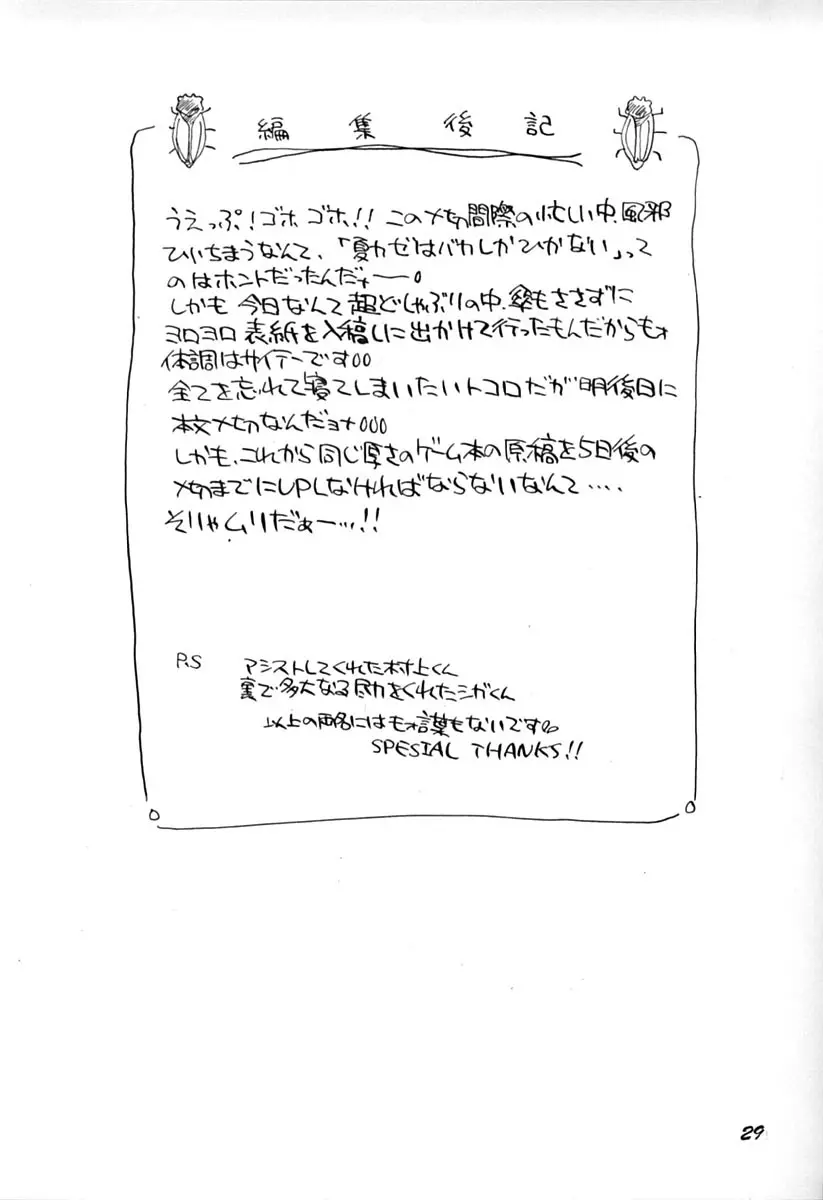 編集後記
うえっぷ!ゴホ ゴホ!! この〆切間際の忙しい中、風邪
ひいちまうなんて、「夏カゼはバカしかひかない」って
のはホントだったんだナー。
しかも 今日なんて超どしゃぶりの中、傘もささずに
ヨロヨロ 表紙を入稿しに出かけて行ったもんだからもォ
体調はサイテーです。。
全てを忘れて寝てしまいたいトコロだが明後日に
本文〆切なんだョナ。。。
しかも、これから同じ厚さのゲーム本の原稿を5日後の
〆切までにUPしなければならないなんて‥‥
そりゃムリだぁー…!!
P.S アシストしてくれた村上くん
裏で多大なる尽力をくれたシガくん
以上の両名にはもォ言葉もないです。。
SPESIAL THANKS!!
29